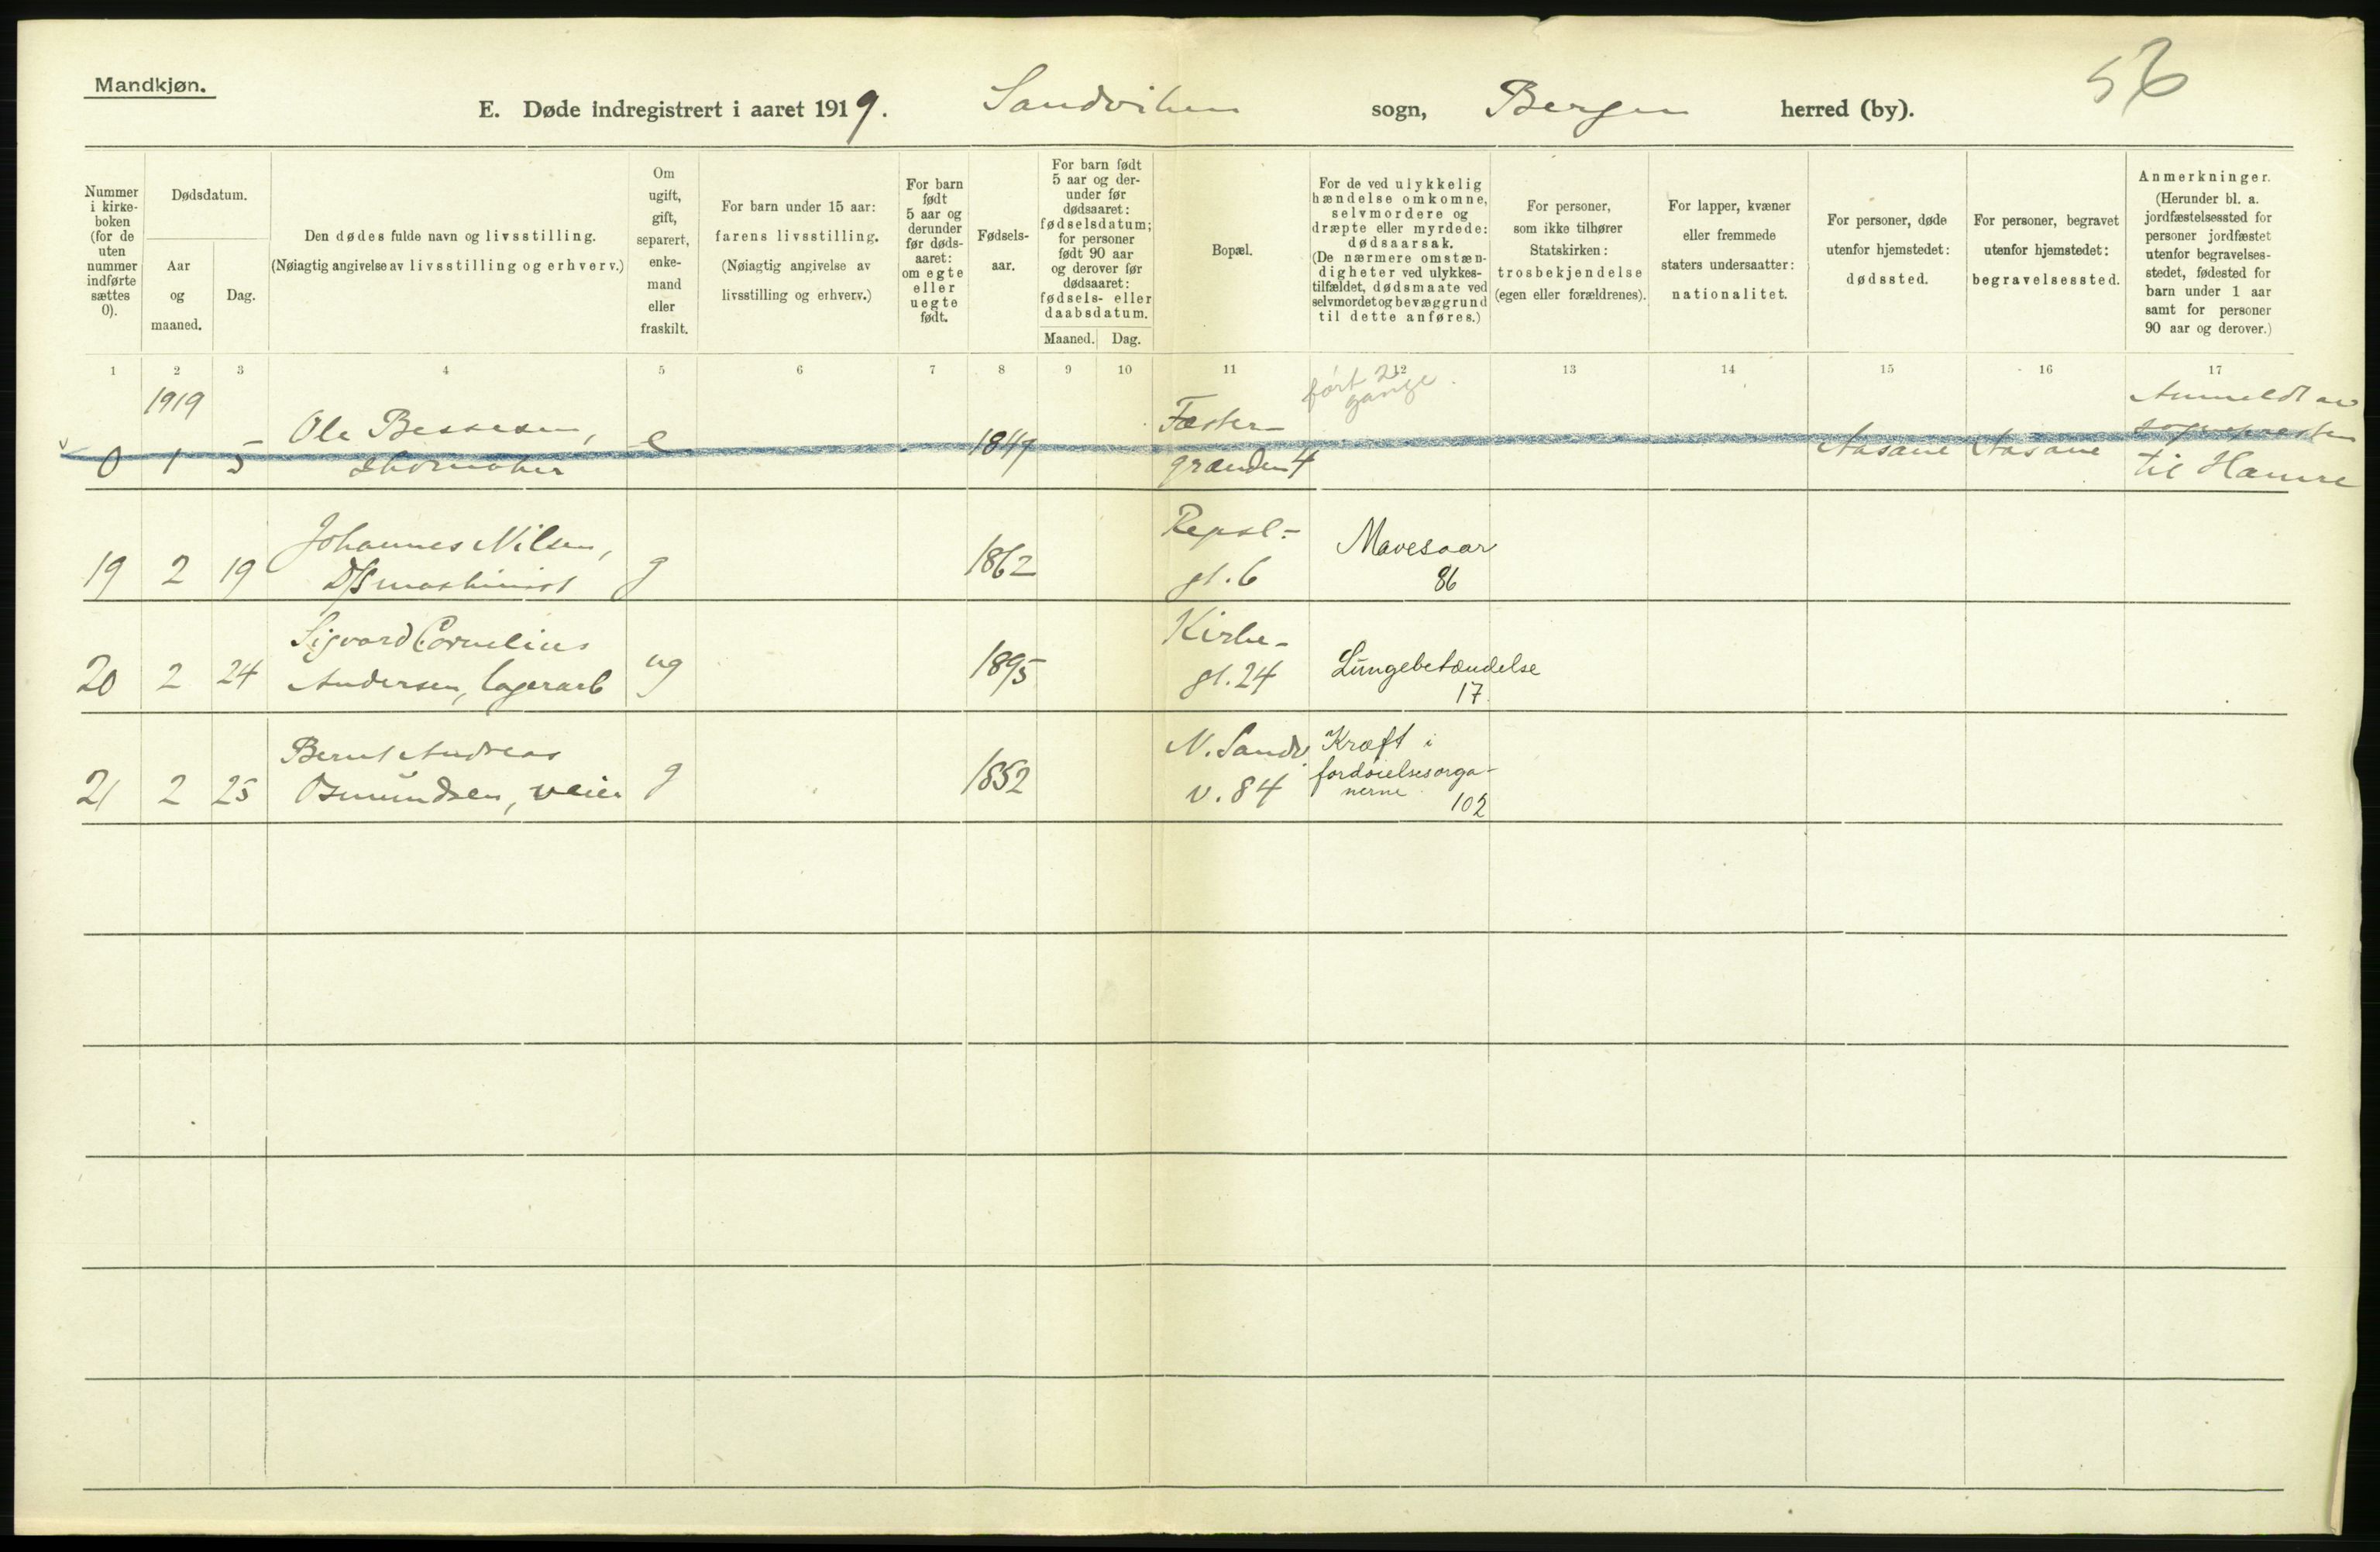 Mandkjøn.
56
E. Døde indregistrert i aaret 1919. Sandviken sogn, Bergen herred (by).
Nummer
i kirke-
boken
(for de
uten
nummer
indførte
sættes
0).
Dødsdatum.
Aar
og
maaned.
Dag.
Den dødes fulde navn og livsstilling.
(Nøiagtig angivelse av livsstilling og erhverv.)
Om
ugift,
gift,
separert,
enke-
mand
eller
fraskilt.
For barn under 15 aar:
farens livsstilling.
(Nøiagtig angivelse av
livsstilling og erhverv.)
For barn
født
5 aar og
derunder
før døds-
aaret:
om egte
eller
uegte
født.
Fødsels-
aar.
For barn født
5 aar og der-
under før
dødsaaret:
fødselsdatum;
for personer
født 90 aar
og derover før
dødsaaret:
fødsels- eller
daabsdatum.
Maaned. Dag.
Bopæl.
For de ved ulykkelig
hændelse omkomne,
selvmordere og
dræpte eller myrdede:
dødsaarsak.
(De nærmere omstæn-
digheter ved ulykkes-
tilfældet, dødsmaate ved
selvmordet og bevæggrund
til dette anføres.)
For personer,
som ikke tilhører
Statskirken:
trosbekjendelse
(egen eller forældrenes).
For lapper, kvæner
eller fremmede
staters undersaatter:
nationalitet.
For personer, døde
utenfor hjemstedet:
dødssted.
For personer, begravet
utenfor hjemstedet:
begravelsessted.
Anmerkninger.
(Herunder bl. a.
jordfæstelsessted for
personer jordfæstet
utenfor begravelses-
stedet, fødested for
barn under 1 aar
samt for personer
90 aar og derover.)
1 2 3 4 5 6 7 8 9 10 11 12 13 14 15 16 17
1919
ført 2
gange.
0 1 5
Ole Bessesen,
skomaker
e
1849
Fæster-
grænden 4
Aasane Aasane
Anmeldt av
sognepresten
til Hamre
19 2 19
Johannes Nilsen,
D/S maskinist
g
1862
Repsl.-
gt. 6
Mavesaar
86
20 2 24
Sigvard Cornelius
Andersen, lagerarb
ug
1895
Kirke-
gt. 24
Lungebetændelse
17.
21 2 25
Bernt Andreas
Osmundsen, veier
g
1852
N. Sandv.
v. 84
Kræft i
fordøielsesorga-
nerne
102